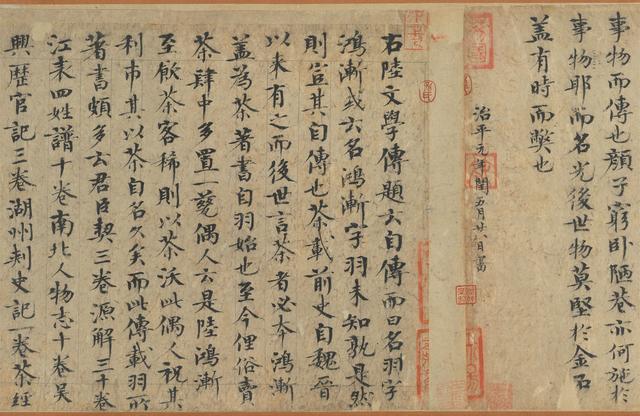 事物而傳也顏子窮卧陋巷亦何施於
事物耶而名光後世物莫堅於金石
盖有時而獘也
治平元年閏五月廿八日書
右陸文學傳題云自傳而曰名羽字
鴻漸或云名鴻漸字羽未知孰是然
則豈其自傳也茶載前史自魏晉
以来有之而後世言茶者必本鴻漸
盖為茶著書自羽始也至今俚俗賣
茶肆中多置一甆偶人云是陸鴻漸
至飲茶客稀則以茶沃此偶人祝其
利市其以茶自名久矣而此傳載羽所
著書頗多云君臣契三卷源解三十卷
江表四姓譜十卷南北人物志十卷吴
興歷官記三卷湖州刺史記一卷茶經